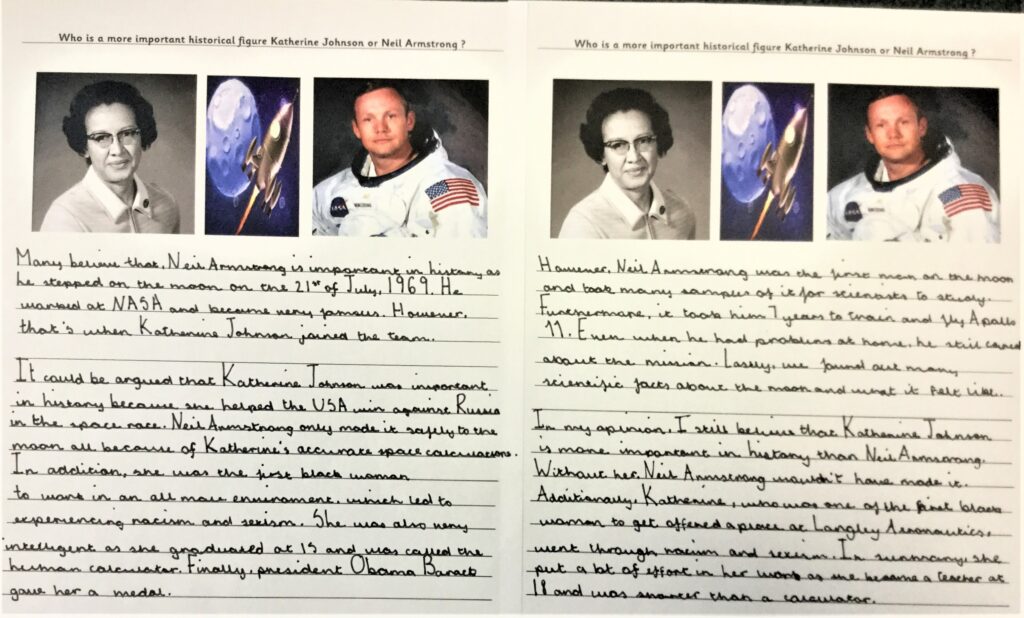 Who is a more important historical figure Katherine Johnson or Neil Armstrong ?
NASA
Many believe that, Neil Armstrong is important in history as
he stepped on the moon on the 21st of July, 1969. He
worked at NASA and became very famous. However,
that's when Katherine Johnson joined the team.
It could be argued that Katherine Johnson was important
in history because she helped the USA win against Russia
in the space race. Neil Armstrong only made it safely to the
moon all because of Katherine's accurate space calculations.
In addition, she was the first black woman
to work in an all male enviroment, which led to
experiencing racism and sexism. She was also very
intelligent as she graduated at 15 and was called the
human calculator. Finally, president Obama Barack
gave her a medal.
Who is a more important historical figure Katherine Johnson or Neil Armstrong ?
However, Neil Armstrong was the first man on the moon
and took many samples of it for scientists to study.
Furthermore, it took him 7 years to train and fly Apollo
11. Even when he had problems at home, he still cared
about the mission. Lastly, we found out many
scientific facts about the moon and what it felt like..
In my opinion, I still believe that Katherine Johnson
is more important in history than Neil Armstrong.
Without her, Neil Armstrong wouldn't have made it.
Additionally, Katherine, who was one of the first black
woman to get offered a place at Langley Aeronautics,
went through racism and sexism. In summary, she
put a lot of effort in her work as she became a teacher at
18 and was smarter than a calculator.